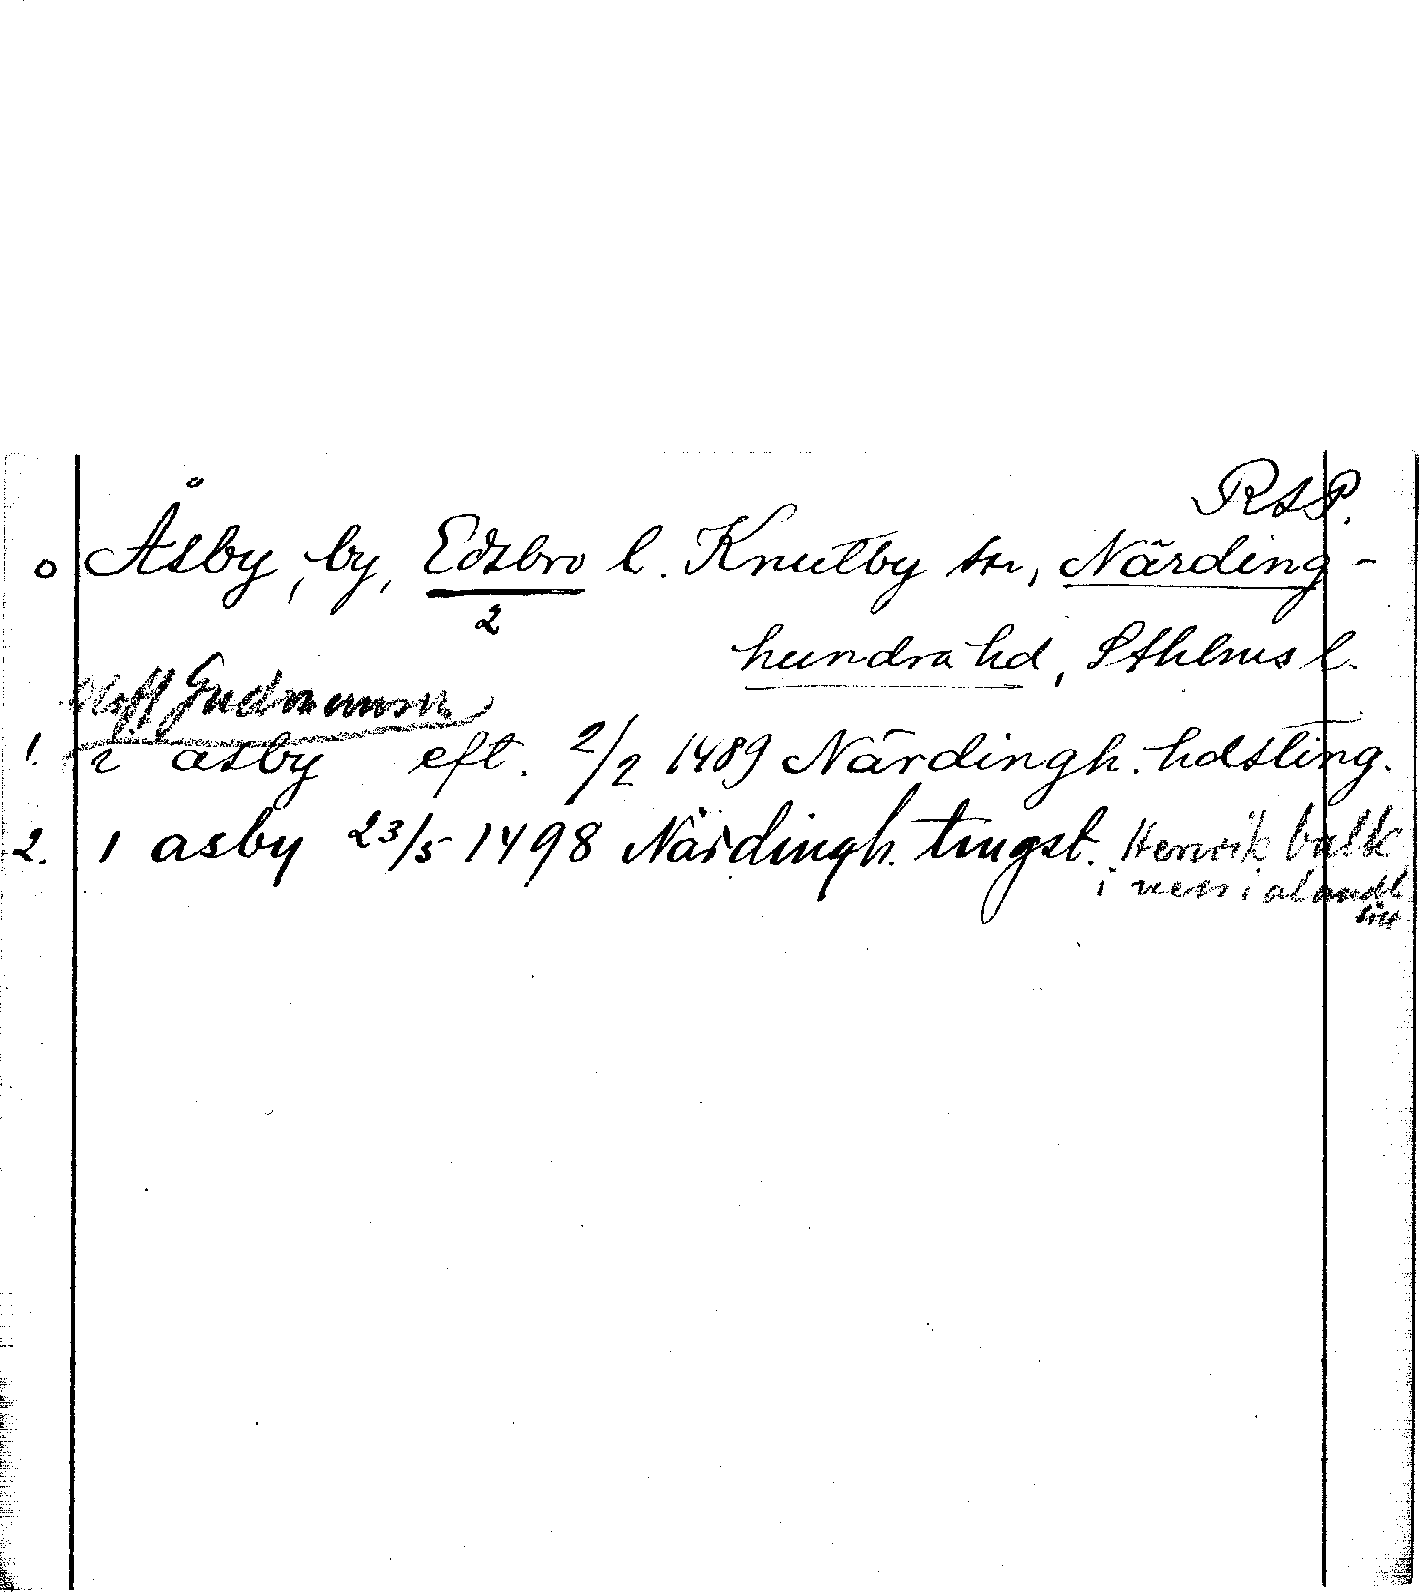 RAP.
o Åsby, by, Edsbro l. Knutby sn, Närding-
2
hundra hd, Sthlms l.
Oloff Gudmunson
1. i asby eft. 2/2 1489 Närdingh. hdsting.
2. i asby 23/5 1498 Närdingh. tingst. Henrik balk
i ness i alandh